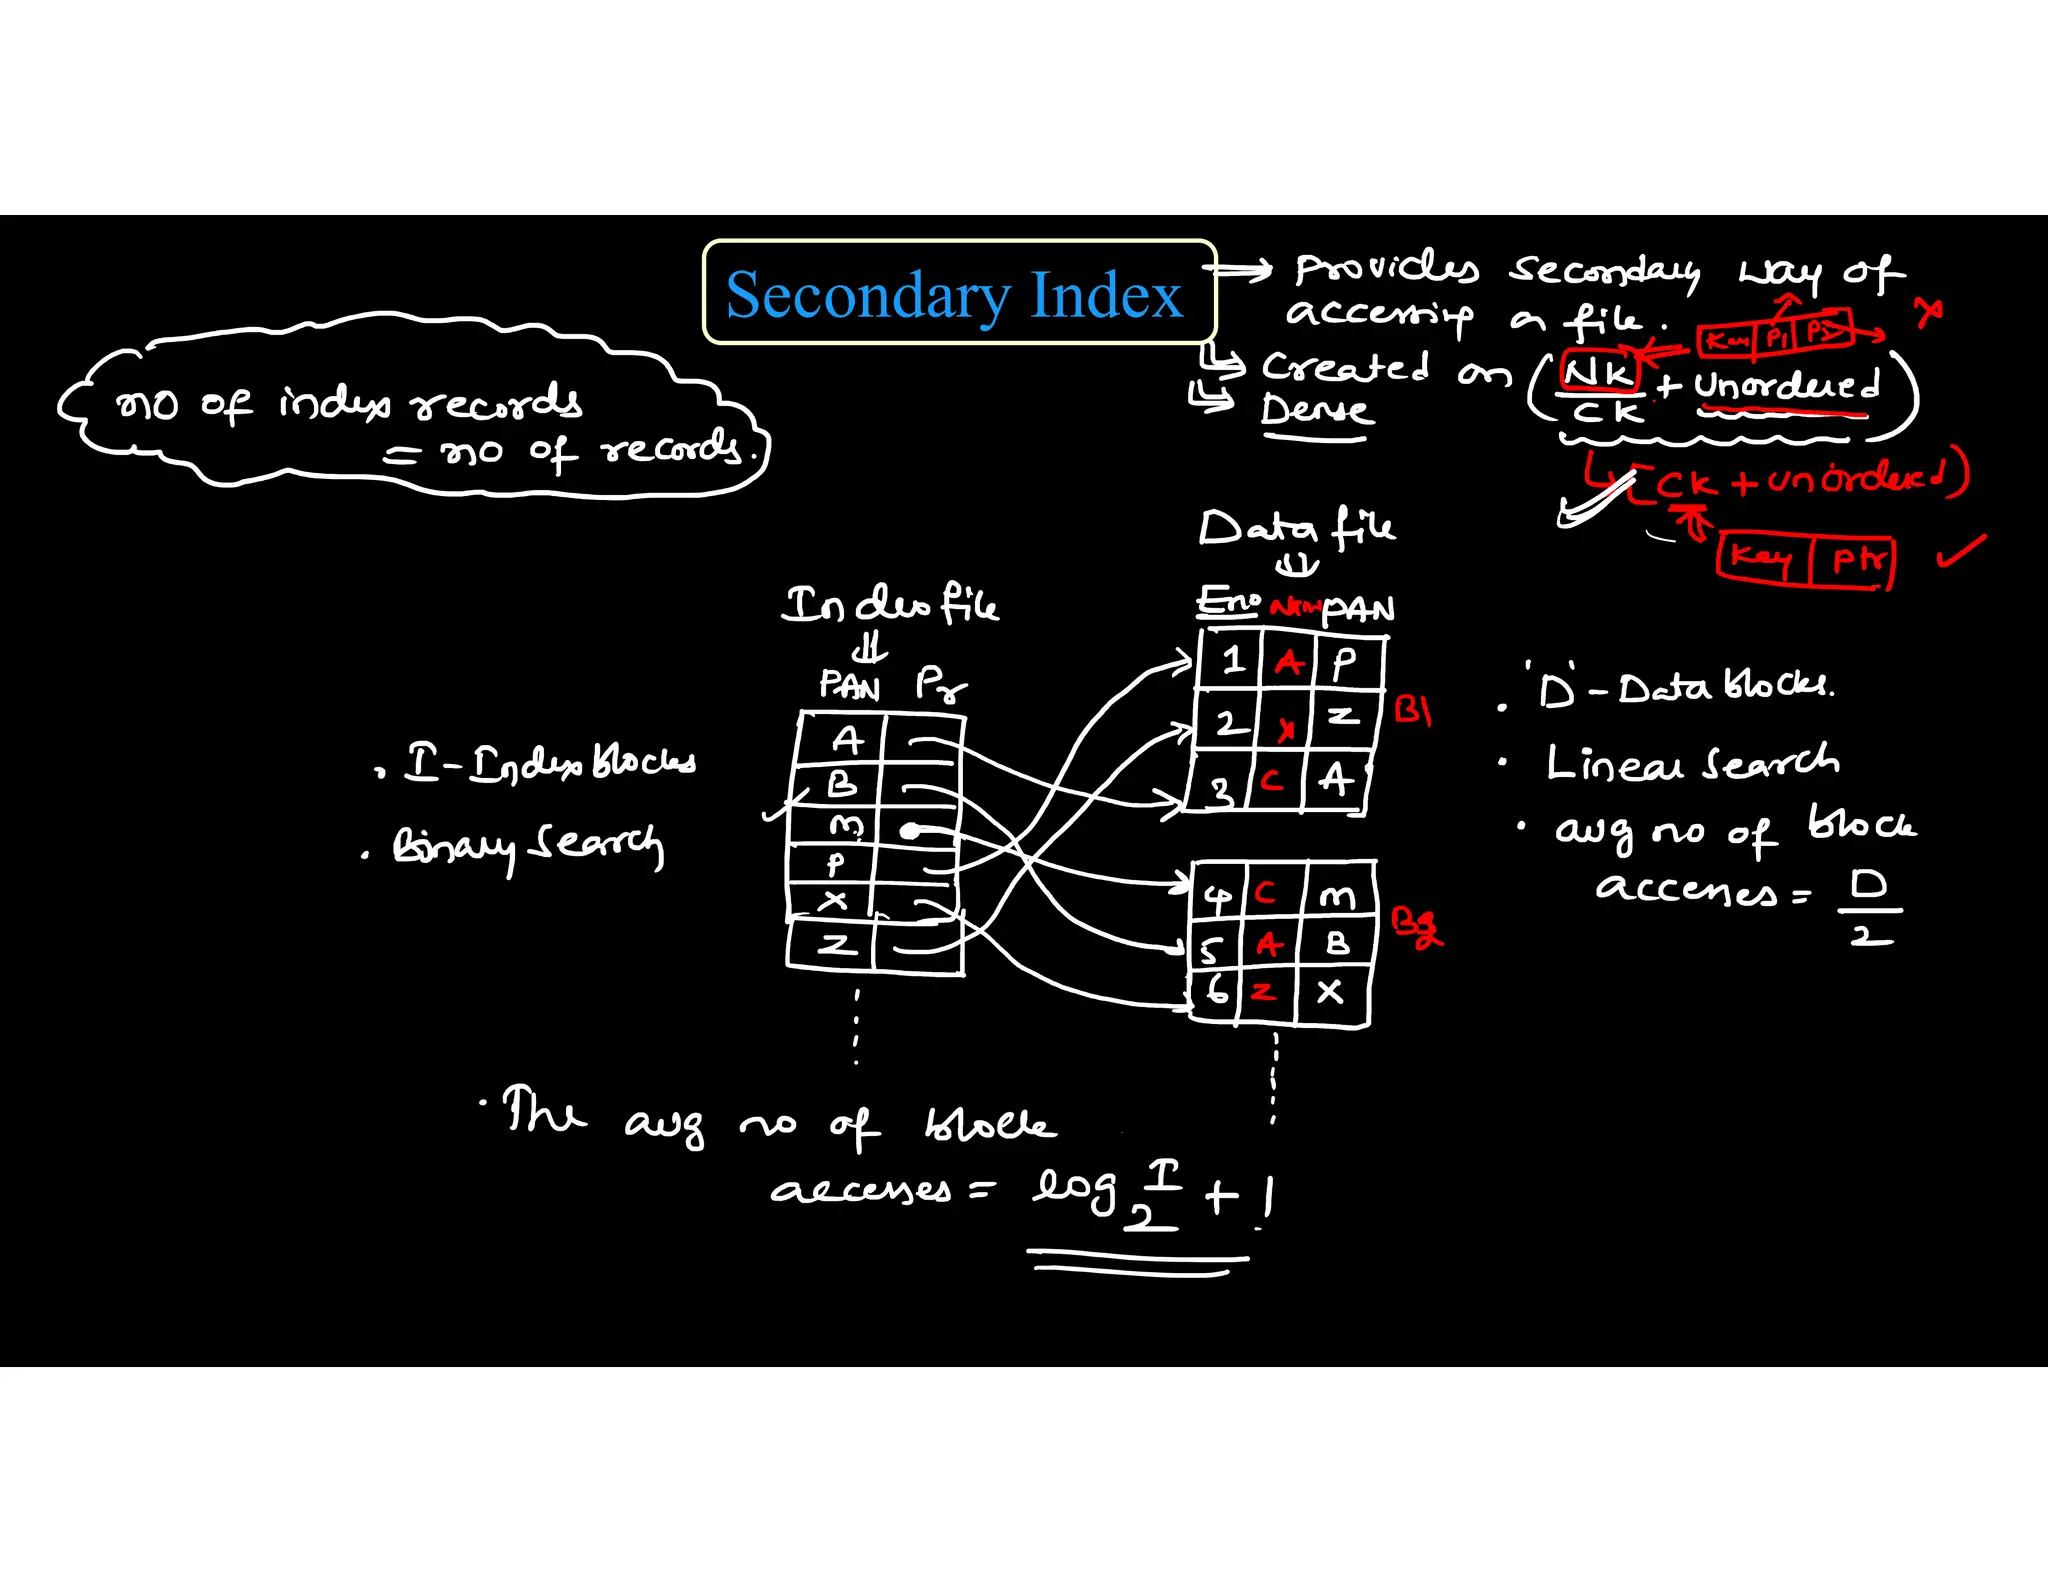 Secondary Index
→ Provides Secondary way of
accessing a file.
Key P1 P2 x
↳ Created on (NK/CK + Unordered)
↳ Dense
↳ [CK + unordered)
Key Ptr ✓
no of index records
= no of records.
Data file
Eno PAN
1 A P
2 x Z
3 C A
B1
4 C m
5 A B
6 Z X
B2
Index file
PAN Pr
A
B
m
P
X
Z
. I - Index blocks
. Binary Search
. 'D' - Data blocks.
. Linear Search
. avg no of block
accesses = D/2
. The avg no of block
accesses = log₂ I + 1